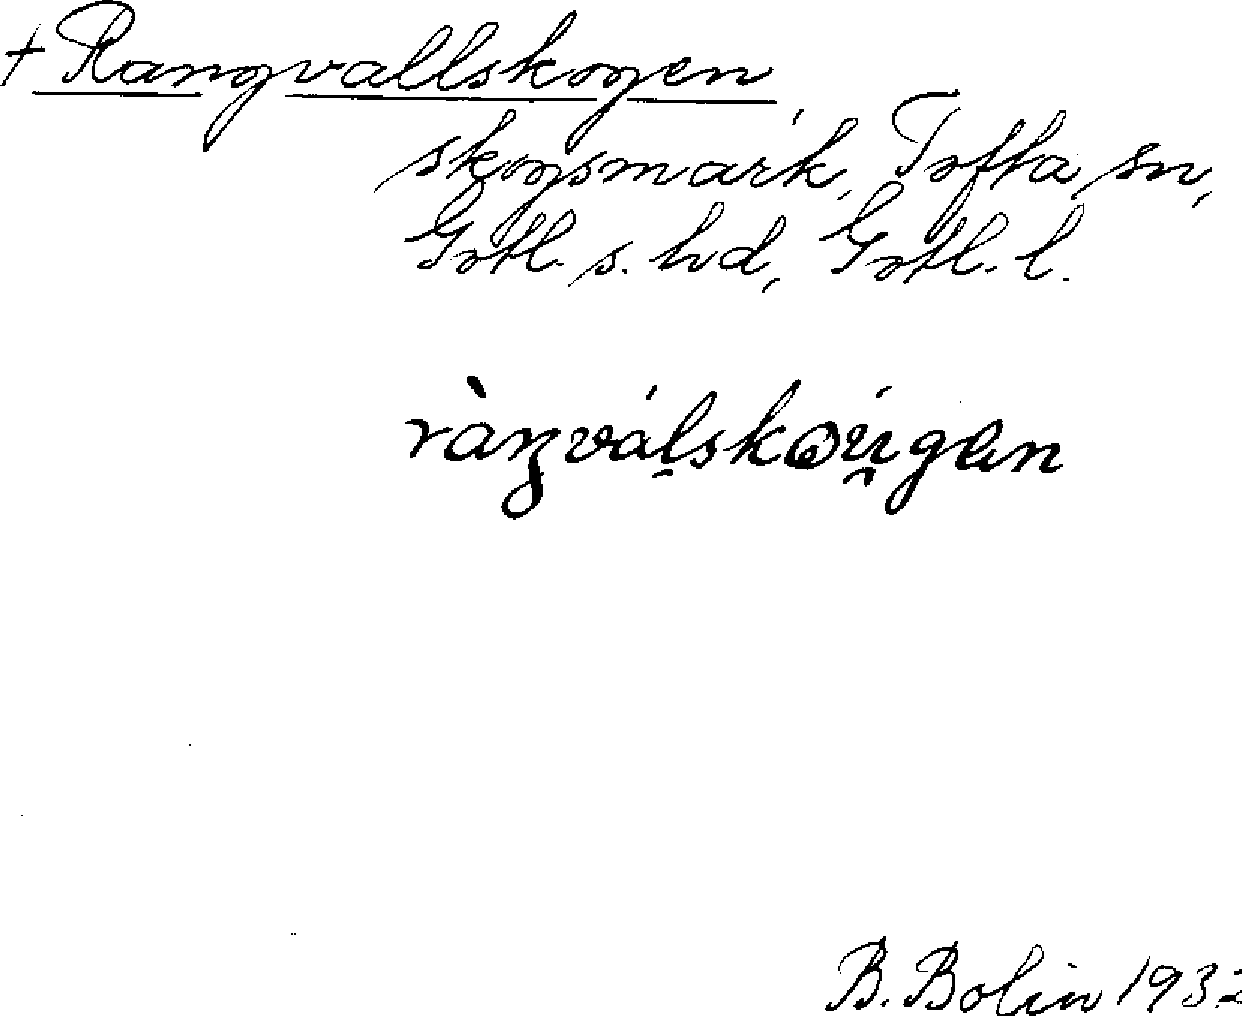 + Rangvallskogen,
skogsmark, Tofta sn,
Gotl. s. hd, Gotl. l.
ràŋválskou̯gen
B. Bolin 1932